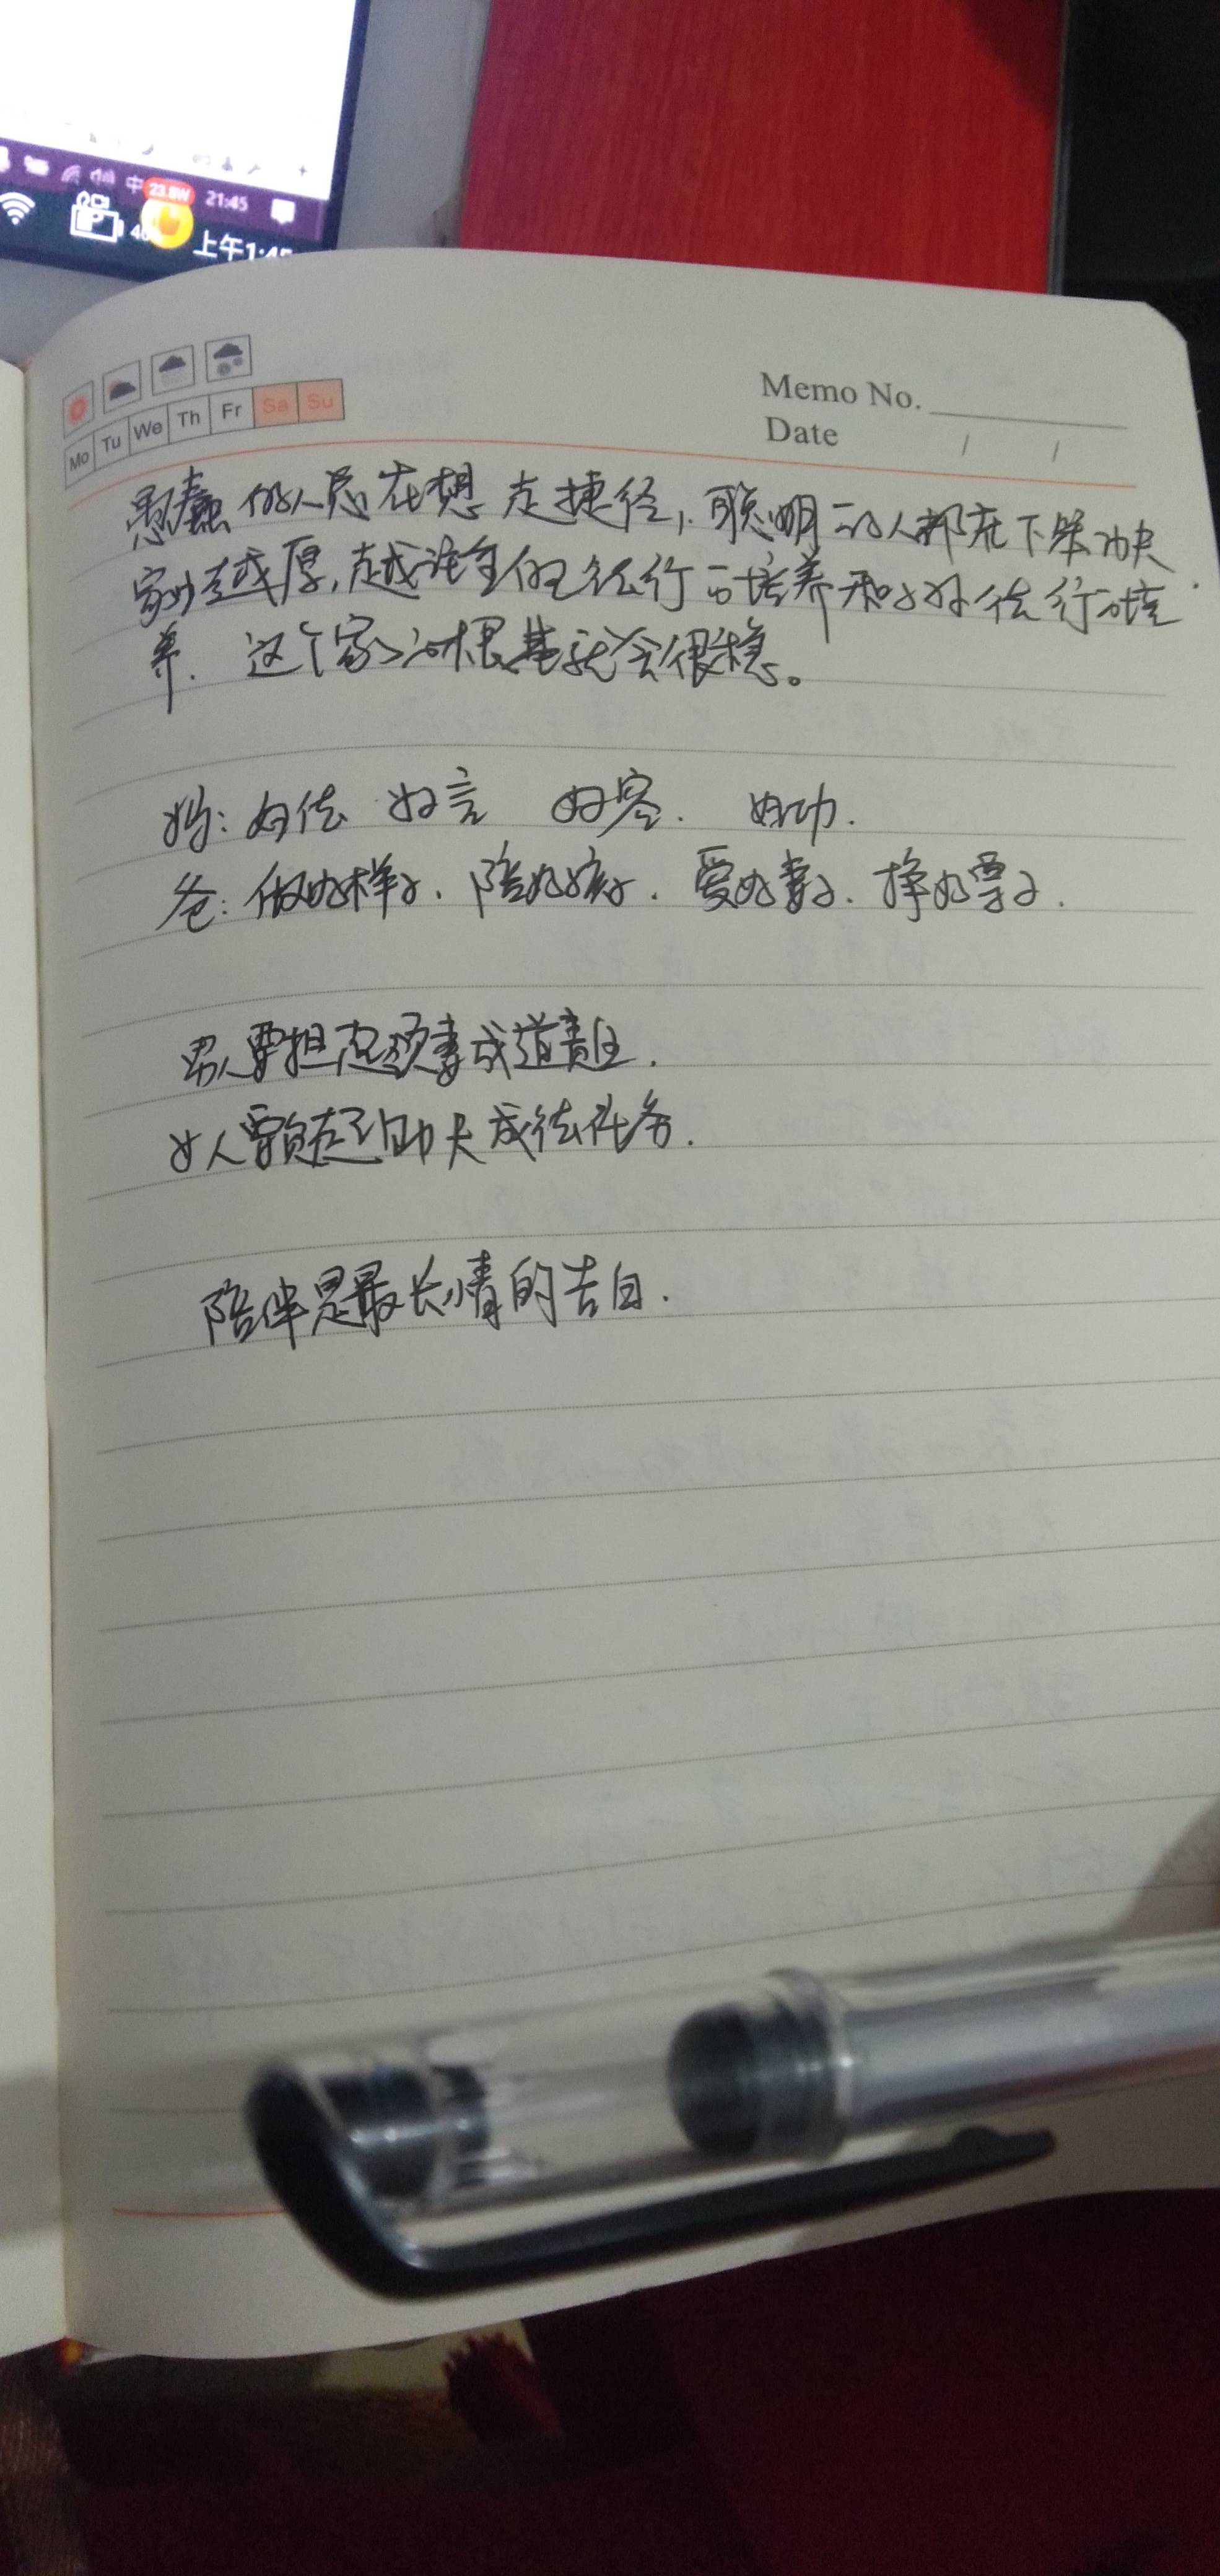 中 23.8W 21:45
上午1:45
Mo Tu We Th Fr Sa Su
Memo No.
Date / /
愚蠢的人总在想走捷径，聪明的人都在下笨功夫
家业越厚，越注重的德行的培养和好德行的培
养．这个家的根基就会很稳。
妈：妇德 妇言 妇容． 妇功．
爸：做好样子．陪好孩子．爱好妻子．挣好票子．
男人要担起领妻成道责任．
女人要负起助夫成德任务．
陪伴是最长情的告白．